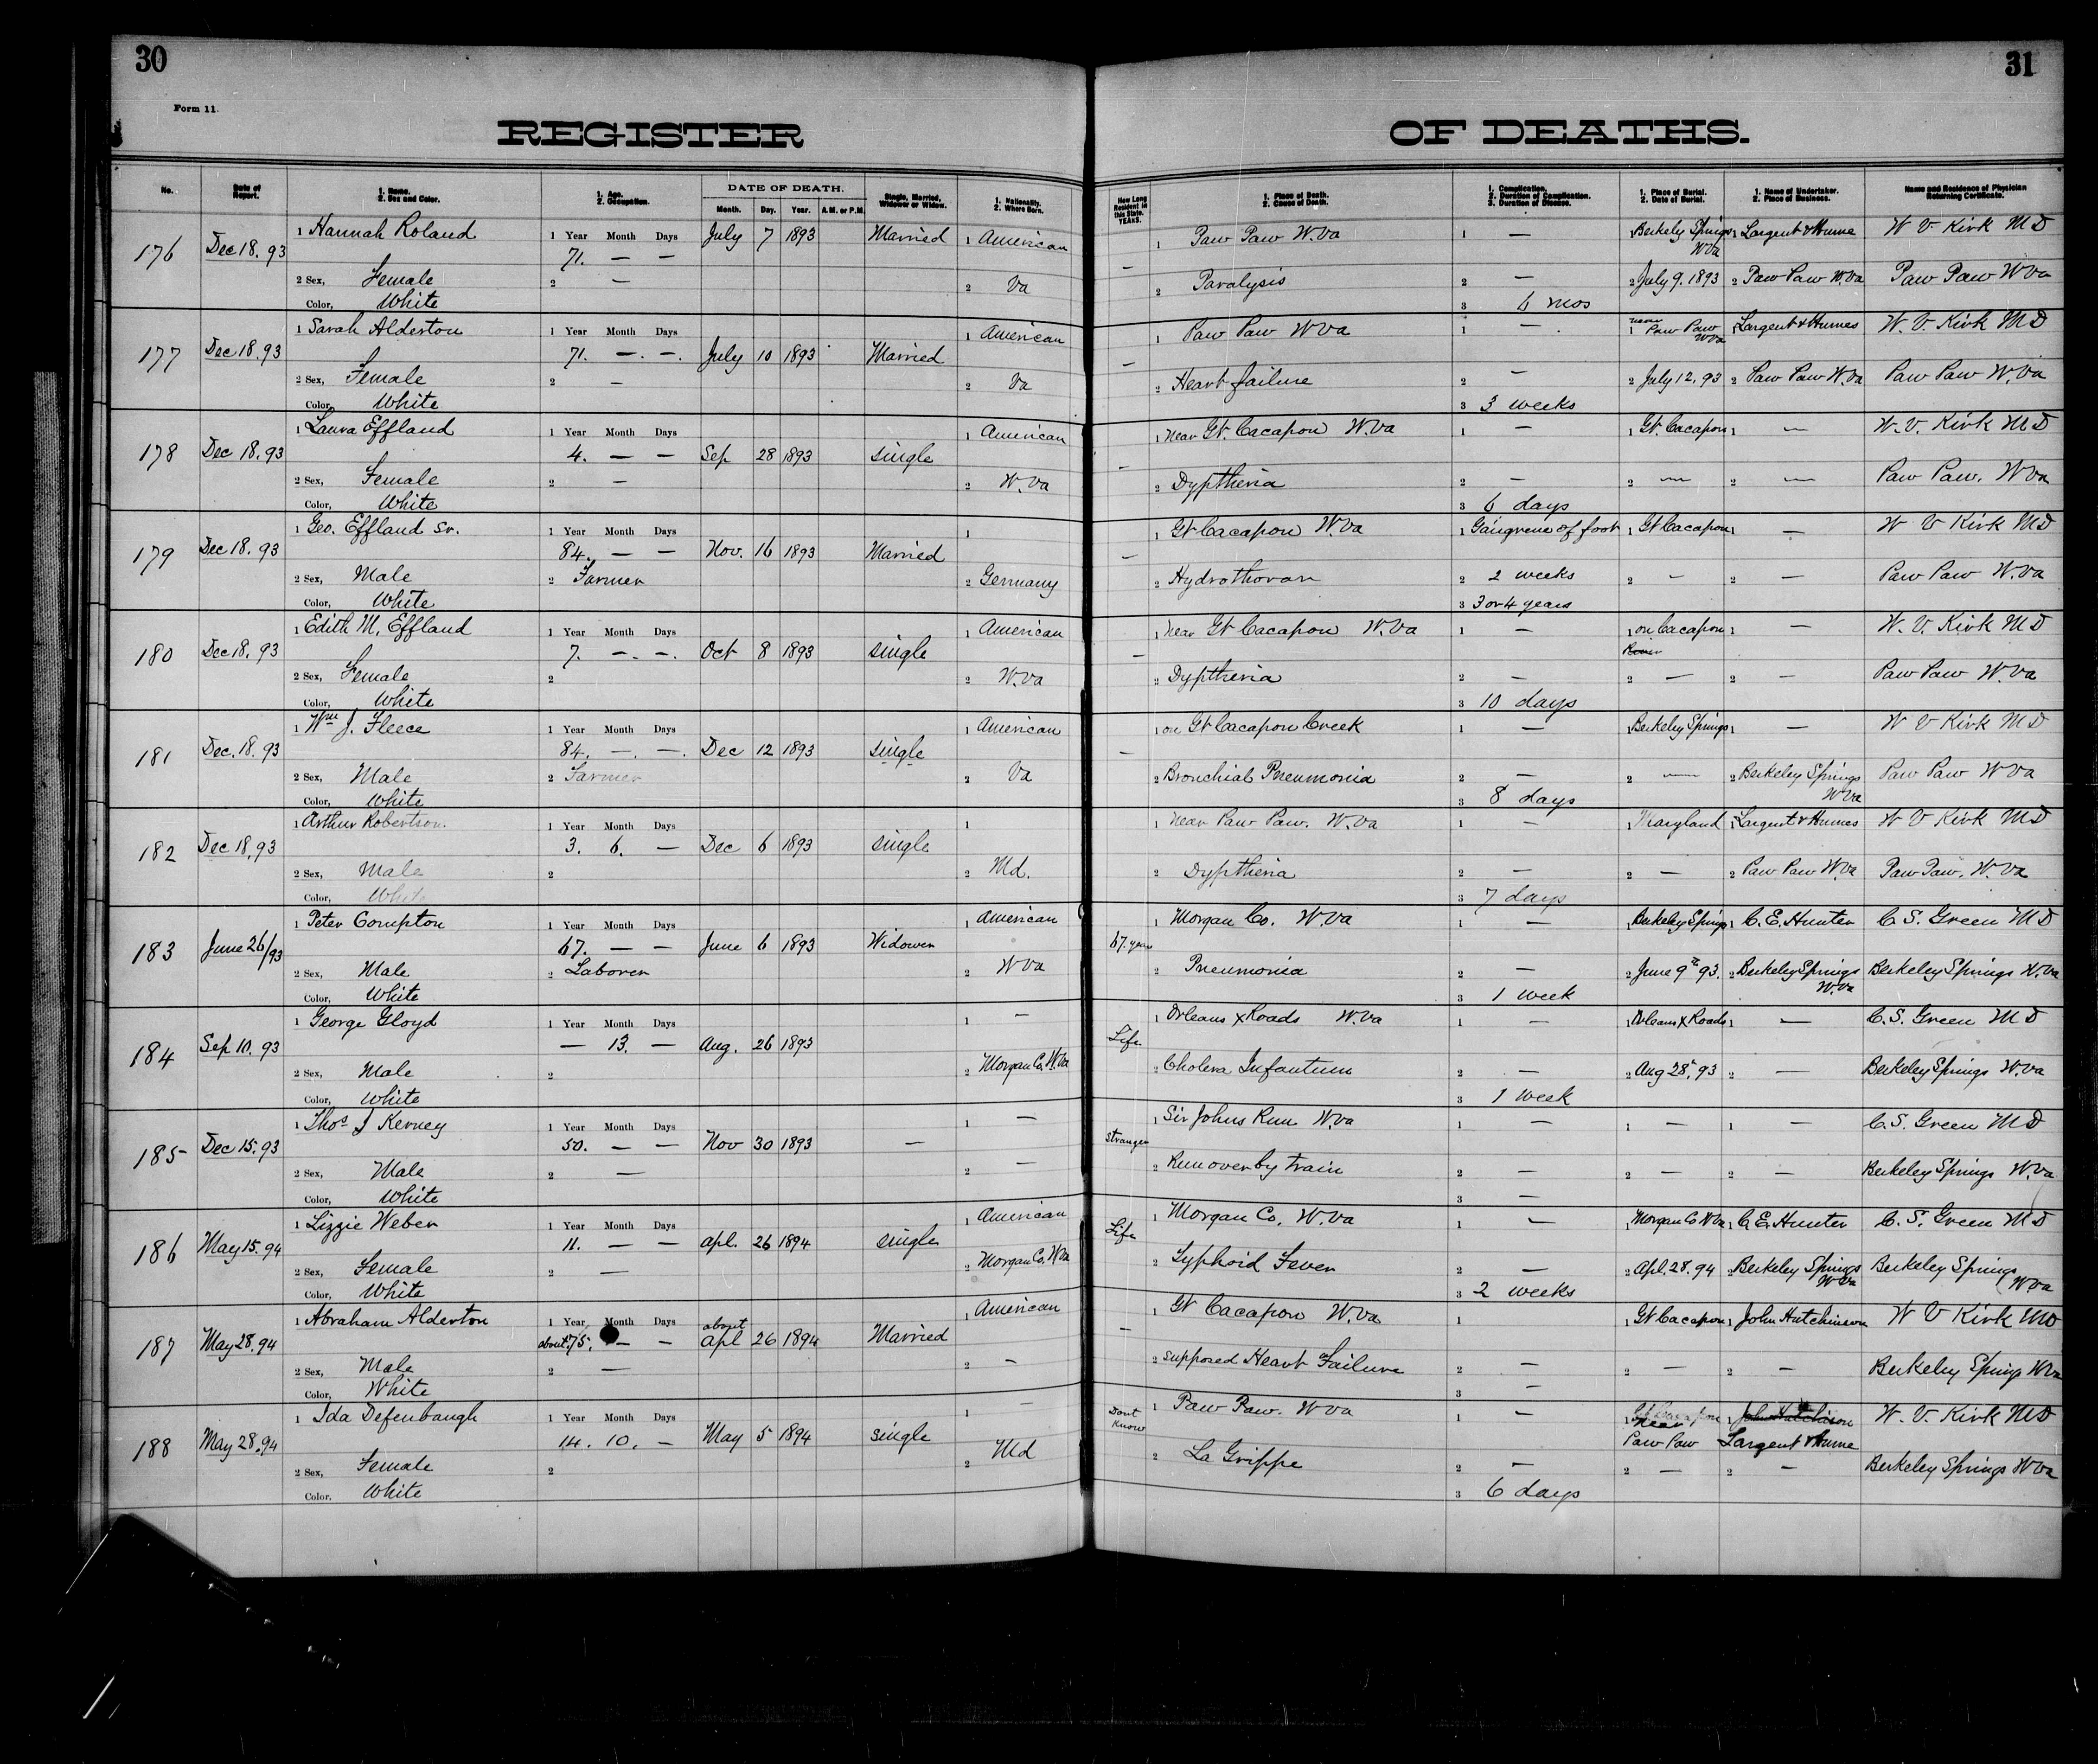 30
31
Form 11.
REGISTER OF DEATHS.
No. | Date of Report. | 1. Name. 2. Sex and Color. | 1. Age. 2. Occupation. | DATE OF DEATH. Month. Day. Year. A.M. or P.M. | Single, Married, Widower or Widow. | 1. Nationality. 2. Where Born. | How Long Resident in this State. YEARS. | 1. Place of Death. 2. Cause of Death. | 1. Complication. 2. Duration of Complication. 3. Duration of Disease. | 1. Place of Burial. 2. Date of Burial. | 1. Name of Undertaker. 2. Place of Business. | Name and Residence of Physician Returning Certificate.
176 Dec 18. 93 1 Hannah Roland 1 Year Month Days 71. — — July 7 1893 Married 1 American — 1 Paw Paw W.Va 1 — 1 Berkeley Springs W Va 1 Largent & Hume W V. Kirk M D
2 Sex, Female 2 — 2 Va 2 Paralysis 2 — 2 July 9. 1893 2 Paw Paw W.Va Paw Paw W Va
Color, White 3 6 mos
177 Dec 18. 93 1 Sarah Alderton 1 Year Month Days 71. — — July 10 1893 Married 1 American — 1 Paw Paw W Va 1 — 1 near Paw Paw W Va 1 Largent & Humes W. V. Kirk M D
2 Sex, Female 2 — 2 Va 2 Heart failure 2 — 2 July 12, 93 2 Paw Paw W.Va Paw Paw W.Va
Color, White 3 3 weeks
178 Dec 18. 93 1 Laura Effland 1 Year Month Days 4. — — Sep 28 1893 single 1 American — 1 near Gt. Cacapon W.Va 1 — 1 Gt. Cacapon 1 — W. V. Kirk M D
2 Sex, Female 2 — 2 W. Va 2 Dyptheria 2 — 2 — 2 — Paw Paw, W Va
Color, White 3 6 days
179 Dec 18. 93 1 Geo. Effland Sr. 1 Year Month Days 84. — — Nov. 16 1893 Married 1 — 1 Gt Cacapon W.Va 1 Gangrene of foot 1 Gt Cacapon 1 — W V Kirk M D
2 Sex, Male 2 Farmer 2 Germany 2 Hydrothorax 2 2 weeks 2 — 2 — Paw Paw W.Va
Color, White 3 3 or 4 years
180 Dec 18. 93 1 Edith M. Effland 1 Year Month Days 7. — — Oct 8 1893 single 1 American — 1 near Gt Cacapon W.Va 1 — 1 on Cacapon River 1 — W. V. Kirk M D
2 Sex, Female 2 2 W.Va 2 Dyptheria 2 — 2 — 2 — Paw Paw W.Va
Color, White 3 10 days
181 Dec. 18. 93 1 Wm J. Fleece 1 Year Month Days 84. — — Dec 12 1893 single 1 American — 1 on Gt Cacapon Creek 1 — 1 Berkeley Springs 1 — W V Kirk M D
2 Sex, Male 2 Farmer 2 Va 2 Bronchial Pneumonia 2 — 2 — 2 Berkeley Springs W Va Paw Paw W Va
Color, White 3 8 days
182 Dec 18, 93 1 Arthur Robertson. 1 Year Month Days 3. 6. — Dec 6 1893 single 1 1 near Paw Paw. W.Va 1 — 1 Maryland 1 Largent & Humes W V Kirk M D
2 Sex, Male 2 2 Md. 2 Dyptheria 2 — 2 — 2 Paw Paw W.Va Paw Paw, W.Va
Color, White 3 7 days
183 June 26/93 1 Peter Compton 1 Year Month Days 67. — — June 6 1893 Widower 1 American 67. years 1 Morgan Co. W.Va 1 — 1 Berkeley Springs 1 C. E. Hunter C. S. Green M D
2 Sex, Male 2 Laborer 2 W Va 2 Pneumonia 2 — 2 June 9th 93. 2 Berkeley Springs W.Va Berkeley Springs W.Va
Color, White 3 1 week
184 Sep 10. 93 1 George Gloyd 1 Year Month Days — 13. — Aug. 26 1893 1 — Life 1 Orleans X Roads W.Va 1 — 1 Orleans X Roads 1 — C. S. Green M D
2 Sex, Male 2 2 Morgan Co. W.Va 2 Cholera Infantum 2 — 2 Aug 28", 93 2 — Berkeley Springs W.Va
Color, White 3 1 week
185 Dec 15. 93 1 Thos J Kerney 1 Year Month Days 50. — — Nov 30 1893 — 1 — stranger 1 Sir Johns Run W.Va 1 — 1 — 1 — C. S. Green M D
2 Sex, Male 2 — 2 — 2 Run over by train 2 — 2 — 2 — Berkeley Springs W.Va
Color, White 3 —
186 May 15. 94 1 Lizzie Weber 1 Year Month Days 11. — — Apl. 26 1894 single 1 American Life 1 Morgan Co. W.Va 1 — 1 Morgan Co W Va 1 C. E. Hunter C. S. Green M D
2 Sex, Female 2 — 2 Morgan Co. W Va 2 Typhoid Fever 2 — 2 Apl. 28. 94 2 Berkeley Springs W Va Berkeley Springs W Va
Color, White 3 2 weeks
187 May 28. 94 1 Abraham Alderton 1 Year Month Days about 75. — — about Apl 26 1894 Married 1 American — 1 Gt Cacapon W.Va 1 1 Gt Cacapon 1 John Hutchinson W V Kirk MD
2 Sex, Male 2 — 2 — 2 supposed Heart Failure 2 — 2 — 2 — Berkeley Springs W Va
Color, White 3 —
188 May 28. 94 1 Ida Defenbaugh 1 Year Month Days 14. 10. — May 5 1894 single 1 — Dont Know 1 Paw Paw. W Va 1 — 1 Gt Cacapon near Paw Paw 1 John Hutchison Largent & Hume W. V. Kirk MD
2 Sex, Female 2 2 Md 2 La Grippe 2 — 2 — 2 — Berkeley Springs W Va
Color, White 3 6 days